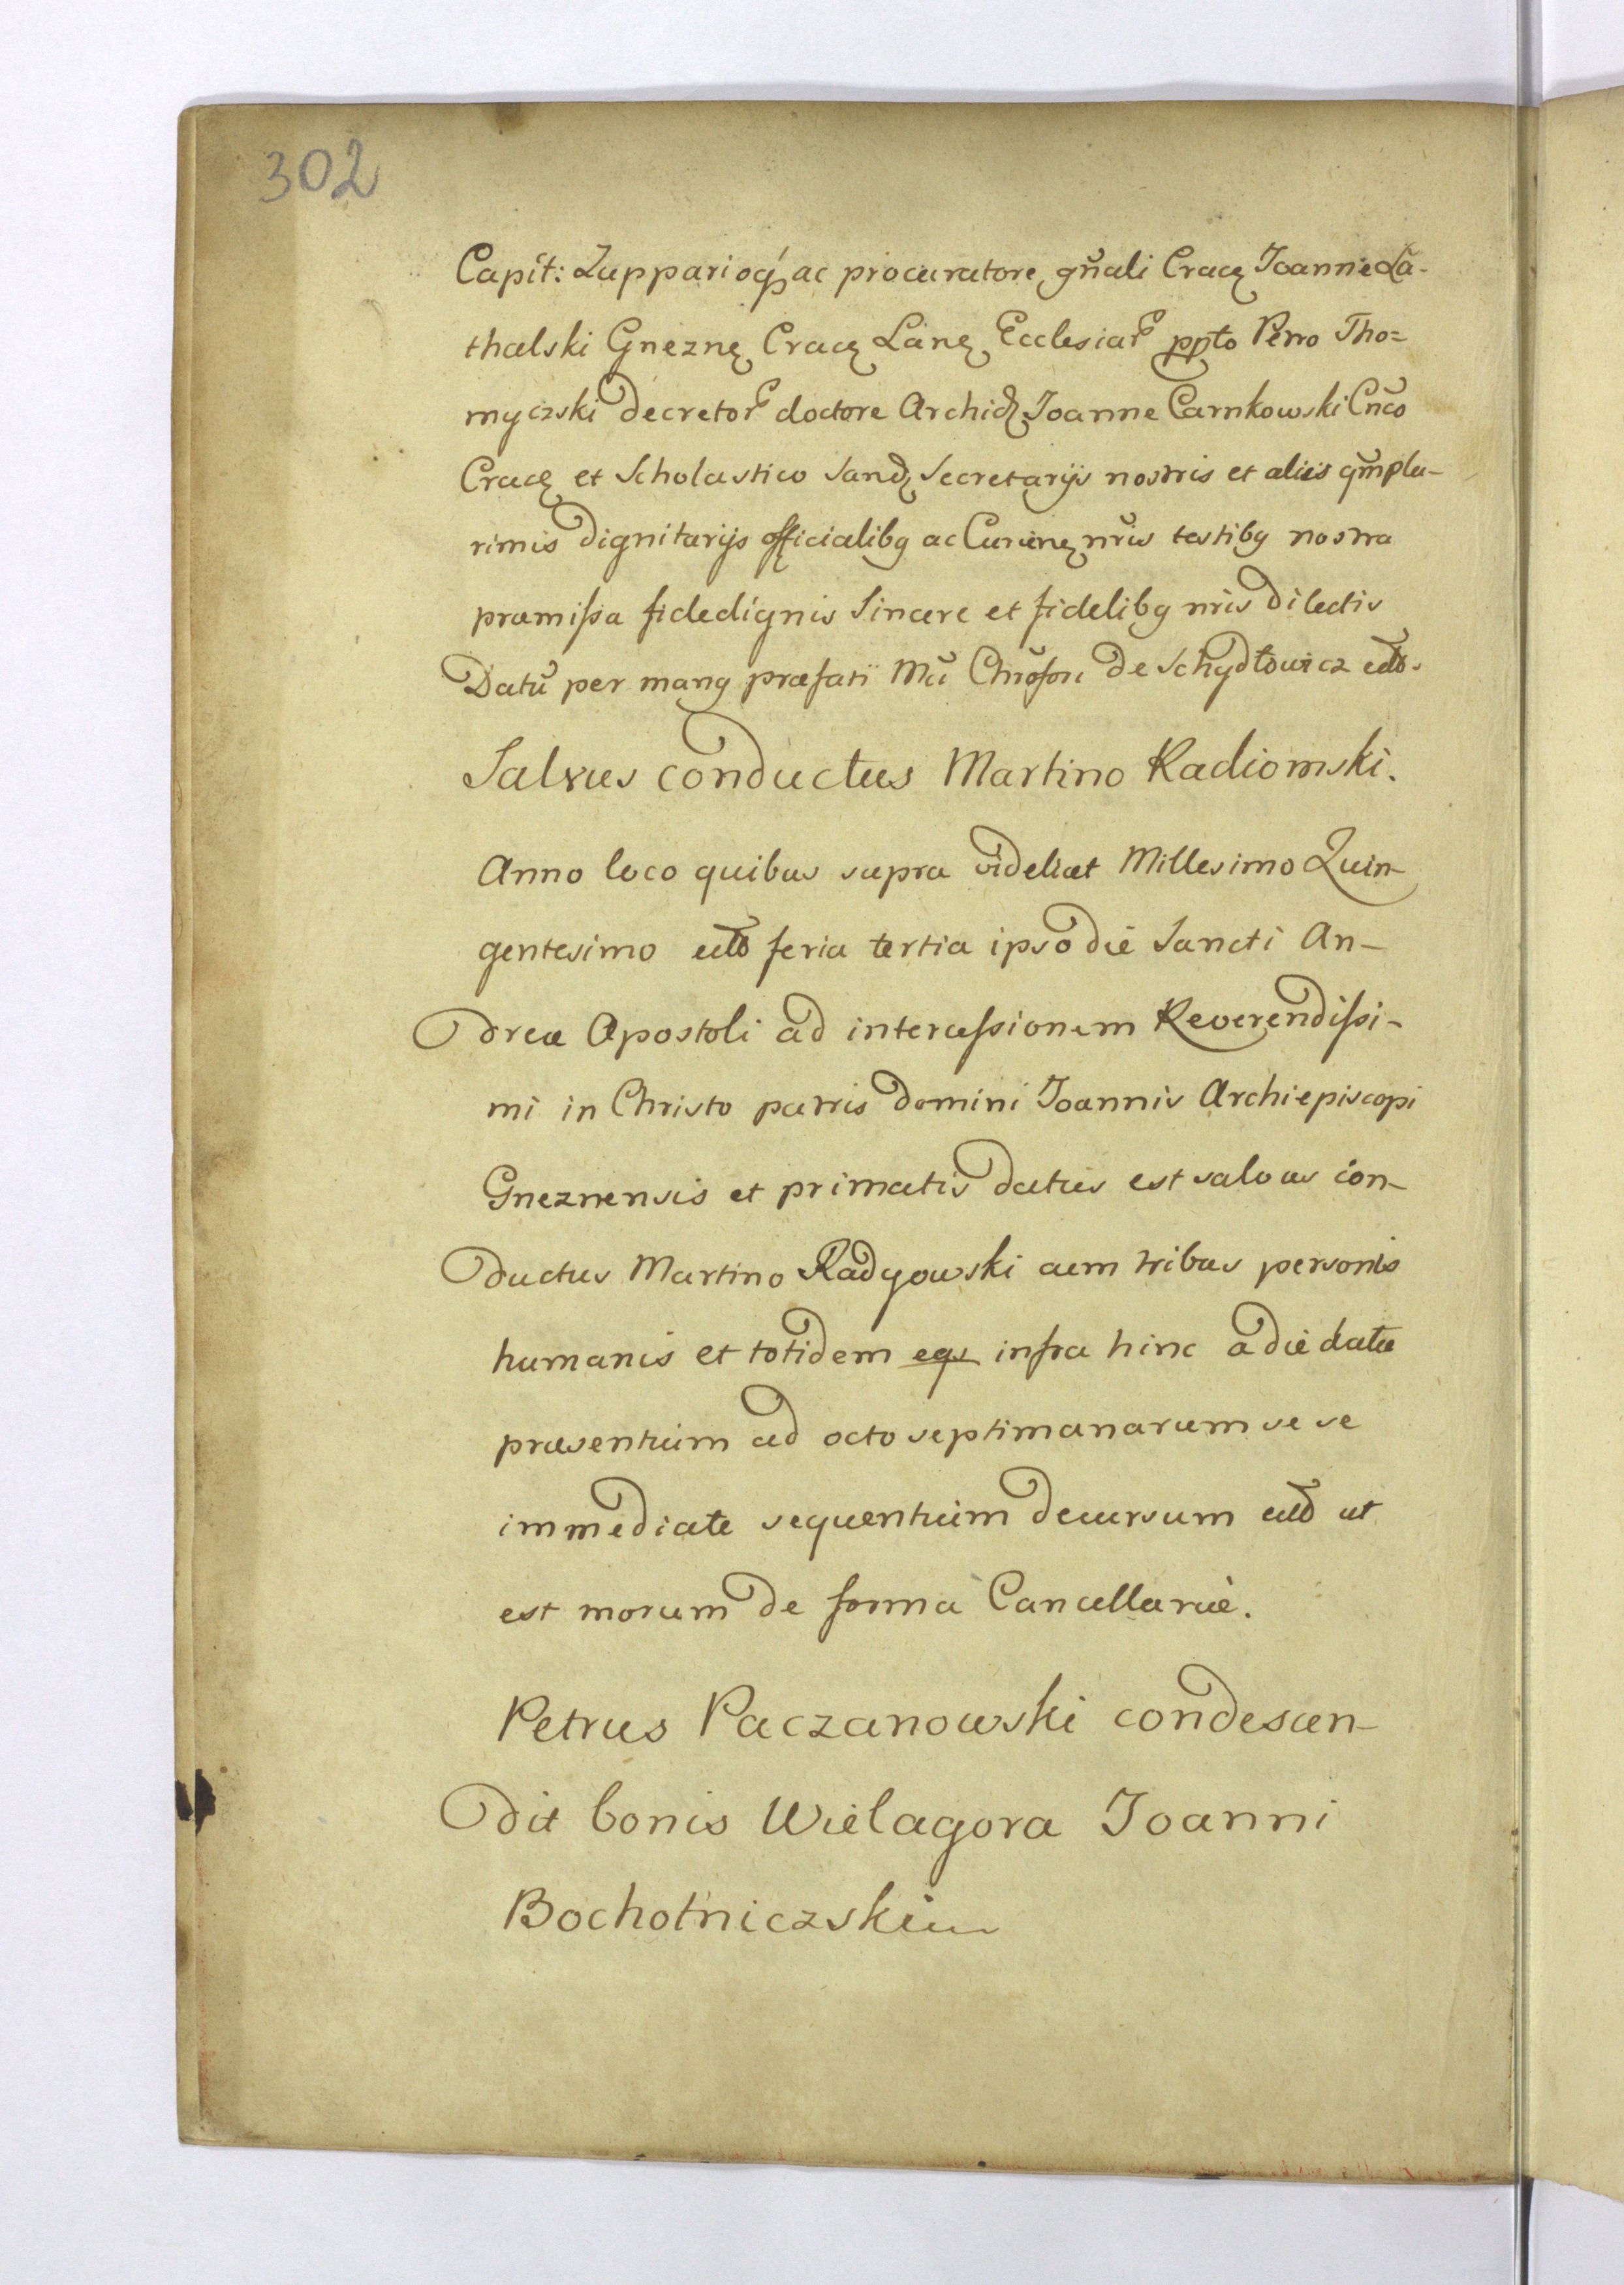 302
Capit: Zupparioq́ ac procuratore gn̄ali Cracę Joanne La-
thalski Gneznę Cracę Lanę Ecclesiar ppto Petro Tho=
myczski decretor doctore Archid Joanne Carnkowski Cn̄co
Cracę et Scholastico Sand Secretarijs nostris et aliis qm̄plu-
rimis dignitarijs officialibq ac Curienę nr̄is testibq nostra
præmissa fidedignis Sincere et fidelibq nr̄is dilectis
Datū per manq præfati de Schydłowicz
Salvus conductus Martino Radiomski.
Anno loco quibus supra videlicet Millesimo Quin-
gentesimo feria tertia ipso die Sancti An-
dreæ Apostoli ad intercessionem Reverendissi-
mi in Christo patris domini Joannis Archiepiscopi
Gneznensis et primatis datus est salvus con-
ductus Martino Radyowski cum tribus personis
humanis et totidem eqs infra hinc a die datæ
præsentium ad octo septimanarum se se
immediate sequentium decursum ut
est morum de forma Cancellariæ.
Petrus Paczanowski condescen-
dit bonis Wielagora Joanni
Bochotniczski